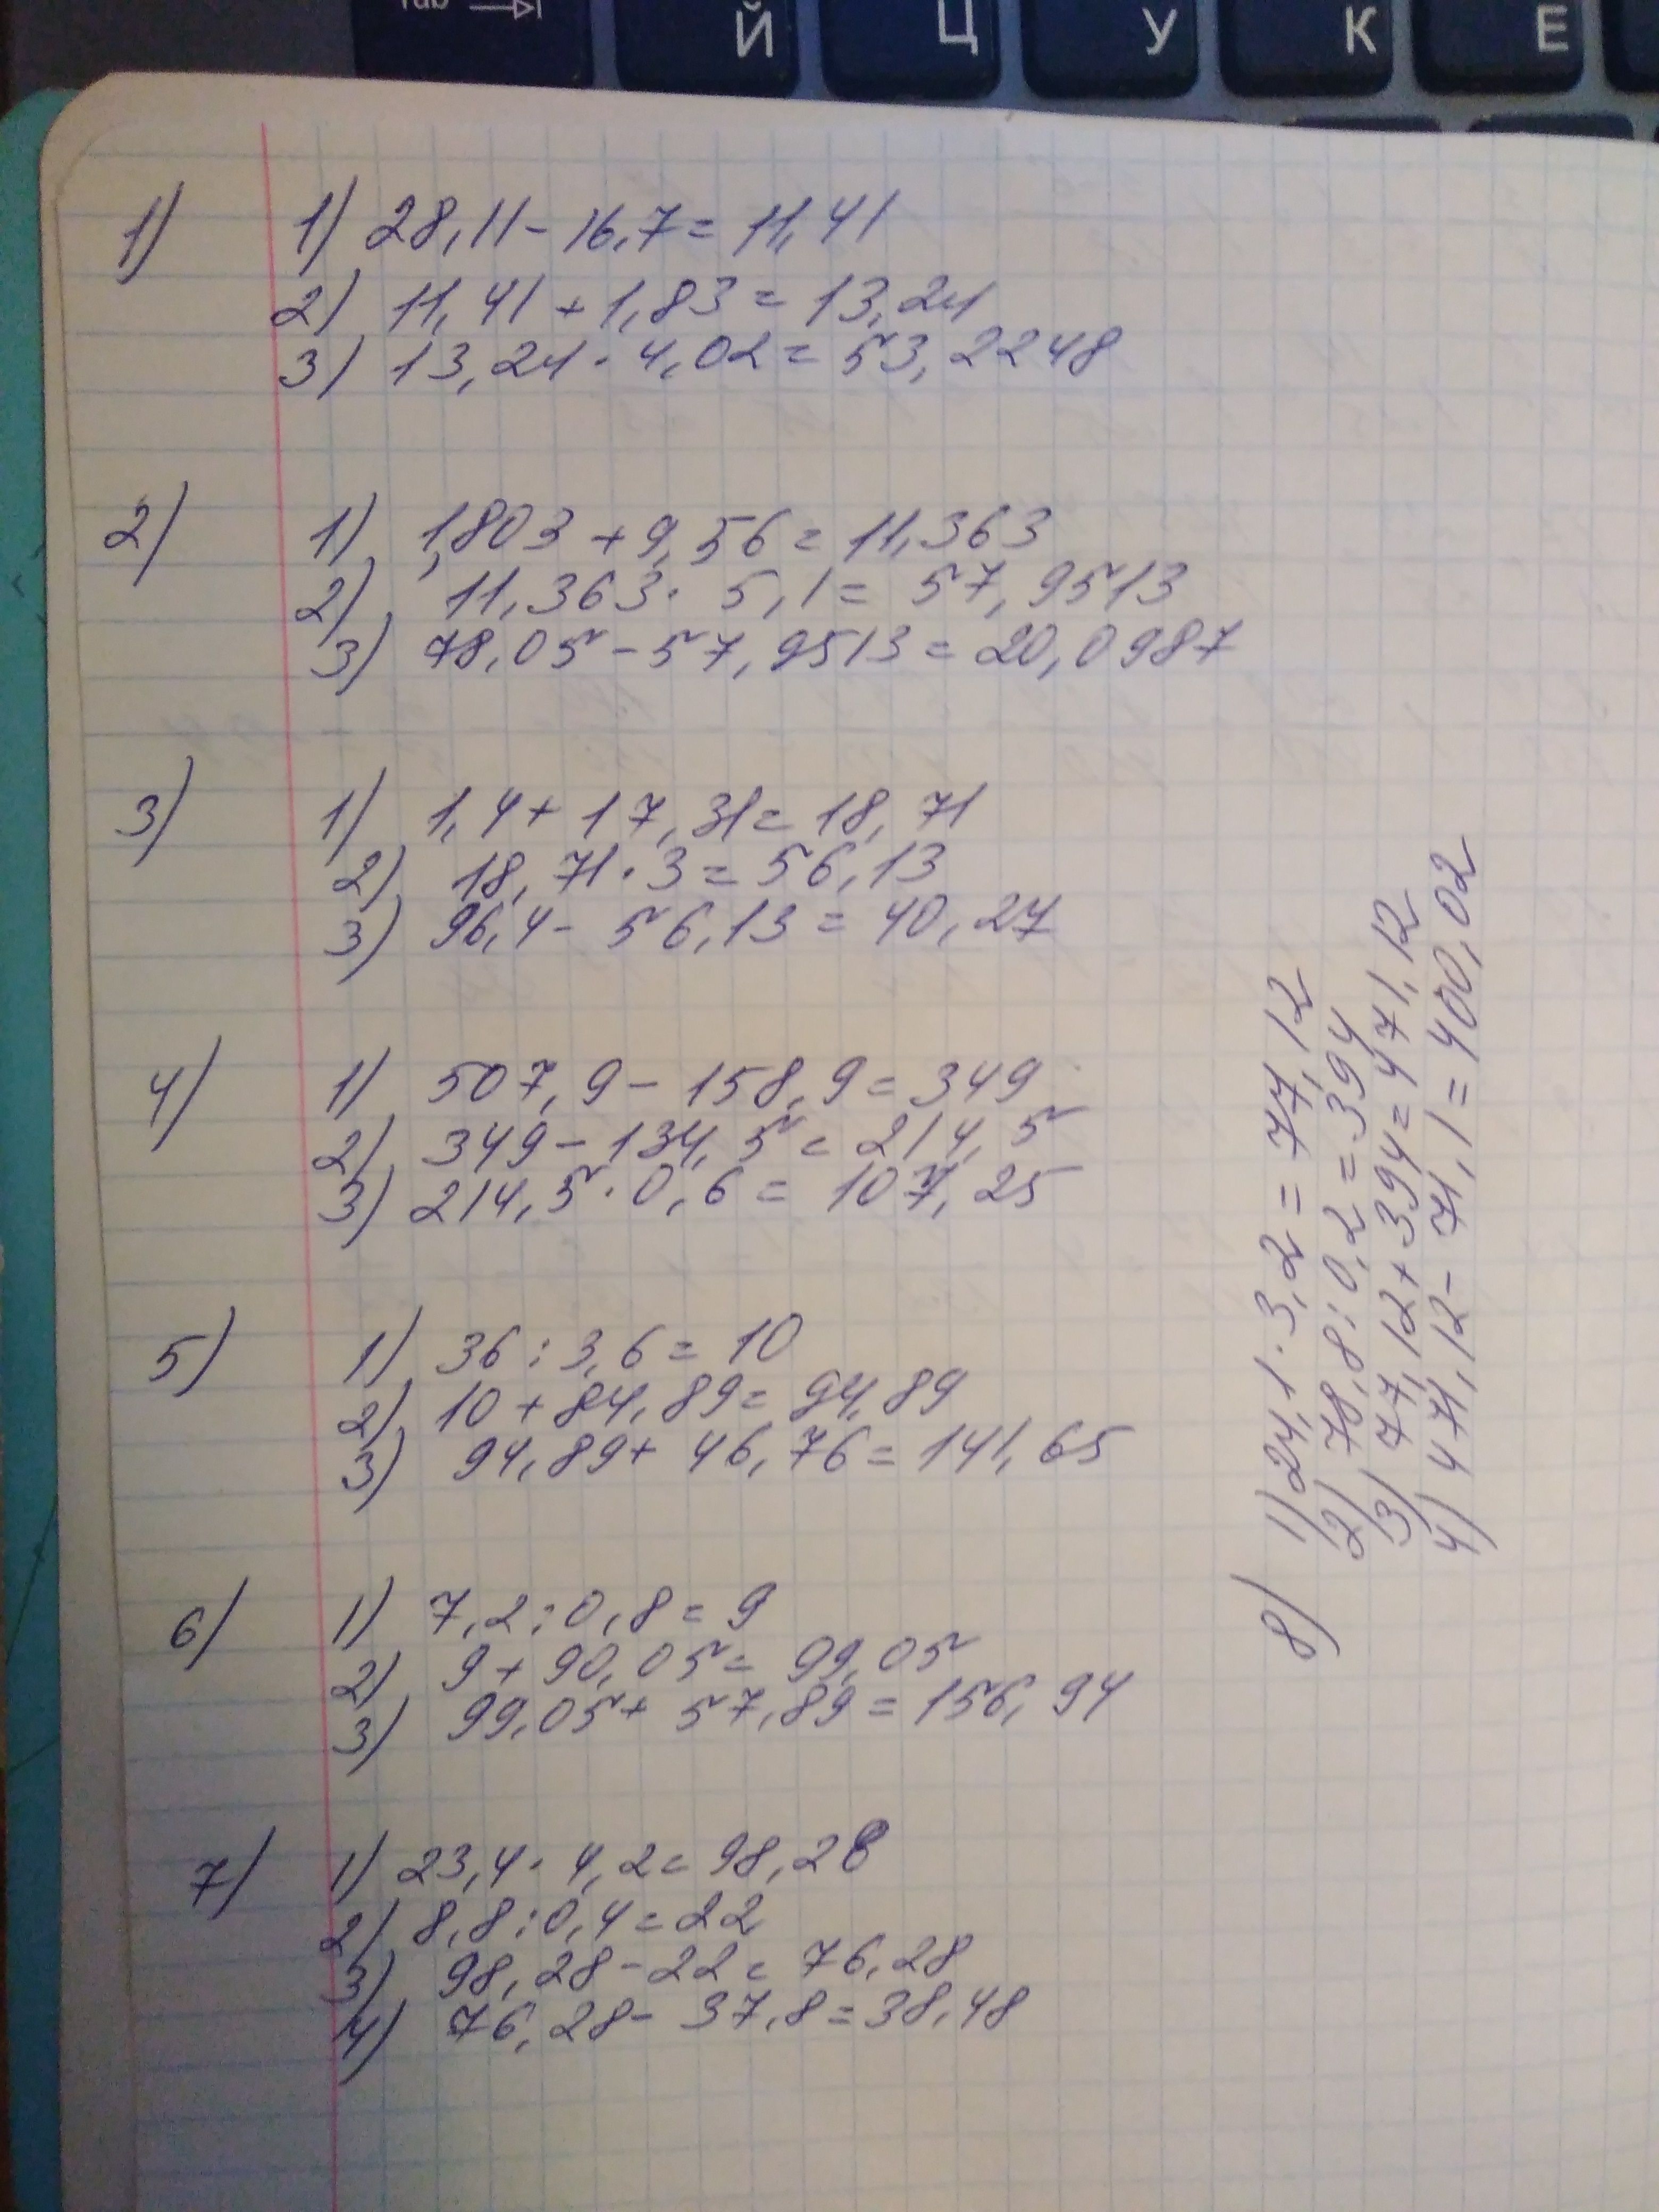 Tab
Й Ц У К Е
1) 1) 28,11 - 16,7 = 11,41
2) 11,41 + 1,83 = 13,24
3) 13,24 · 4,02 = 53,2248
2) 1) 1,803 + 9,56 = 11,363
2) 11,363 · 5,1 = 57,9513
3) 78,05 - 57,9513 = 20,0987
3) 1) 1,4 + 17,31 = 18,71
2) 18,71 · 3 = 56,13
3) 96,4 - 56,13 = 40,27
4) 1) 507,9 - 158,9 = 349
2) 349 - 134,5 = 214,5
3) 214,5 · 0,6 = 107,25
5) 1) 36 : 3,6 = 10
2) 10 + 84,89 = 94,89
3) 94,89 + 46,76 = 141,65
6) 1) 7,2 : 0,8 = 9
2) 9 + 90,05 = 99,05
3) 99,05 + 57,89 = 156,94
7) 1) 23,4 · 4,2 = 98,28
2) 8,8 : 0,4 = 22
3) 98,28 - 22 = 76,28
4) 76,28 - 37,8 = 38,48
8) 1) 24,1 · 3,2 = 77,12
2) 78,8 : 0,2 = 394
3) 77,12 + 394 = 471,12
4) 471,12 - 71,1 = 400,02